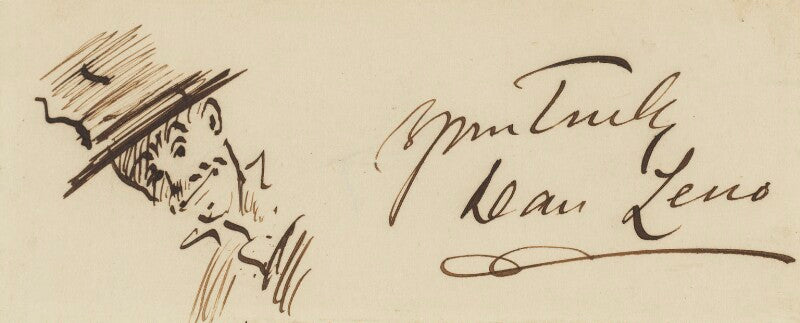 Yours Truly
Dan Leno